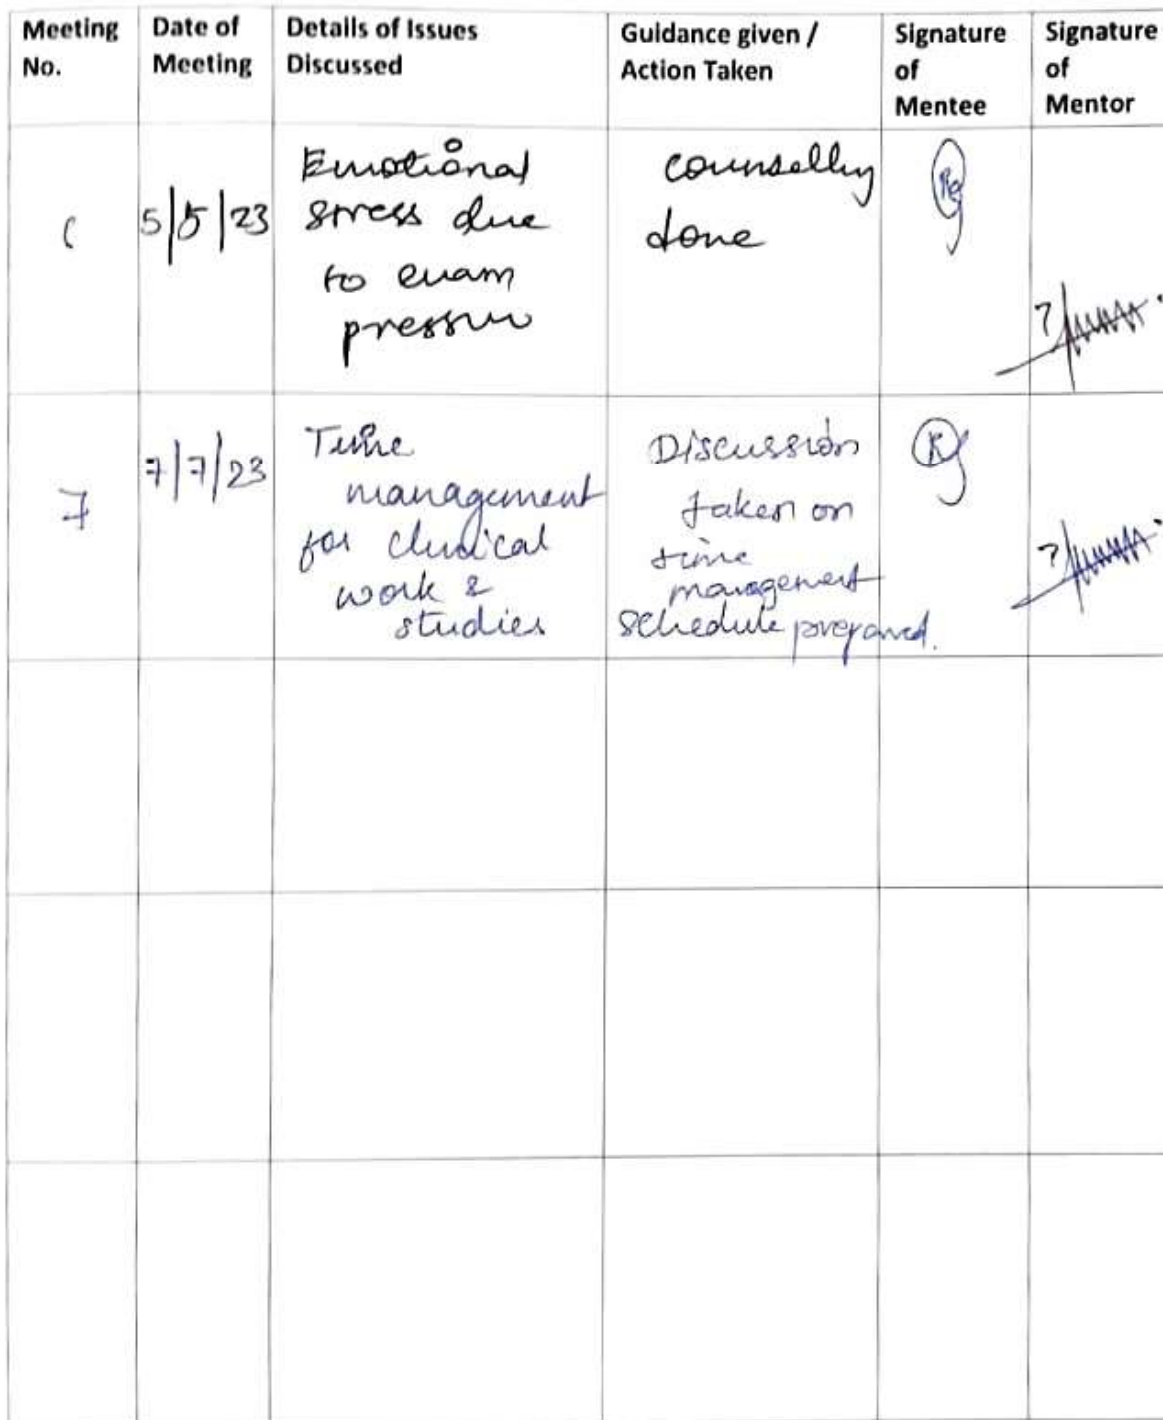 Meeting No.
Date of Meeting
Details of Issues Discussed
Guidance given / Action Taken
Signature of Mentee
Signature of Mentor
5/5/23
Emotional
stress due
to exam
pressure
counselling
done
7
7/7/23
Time
management
for clinical
work &
studies
Discussion
taken on
time
management
schedule prepared.